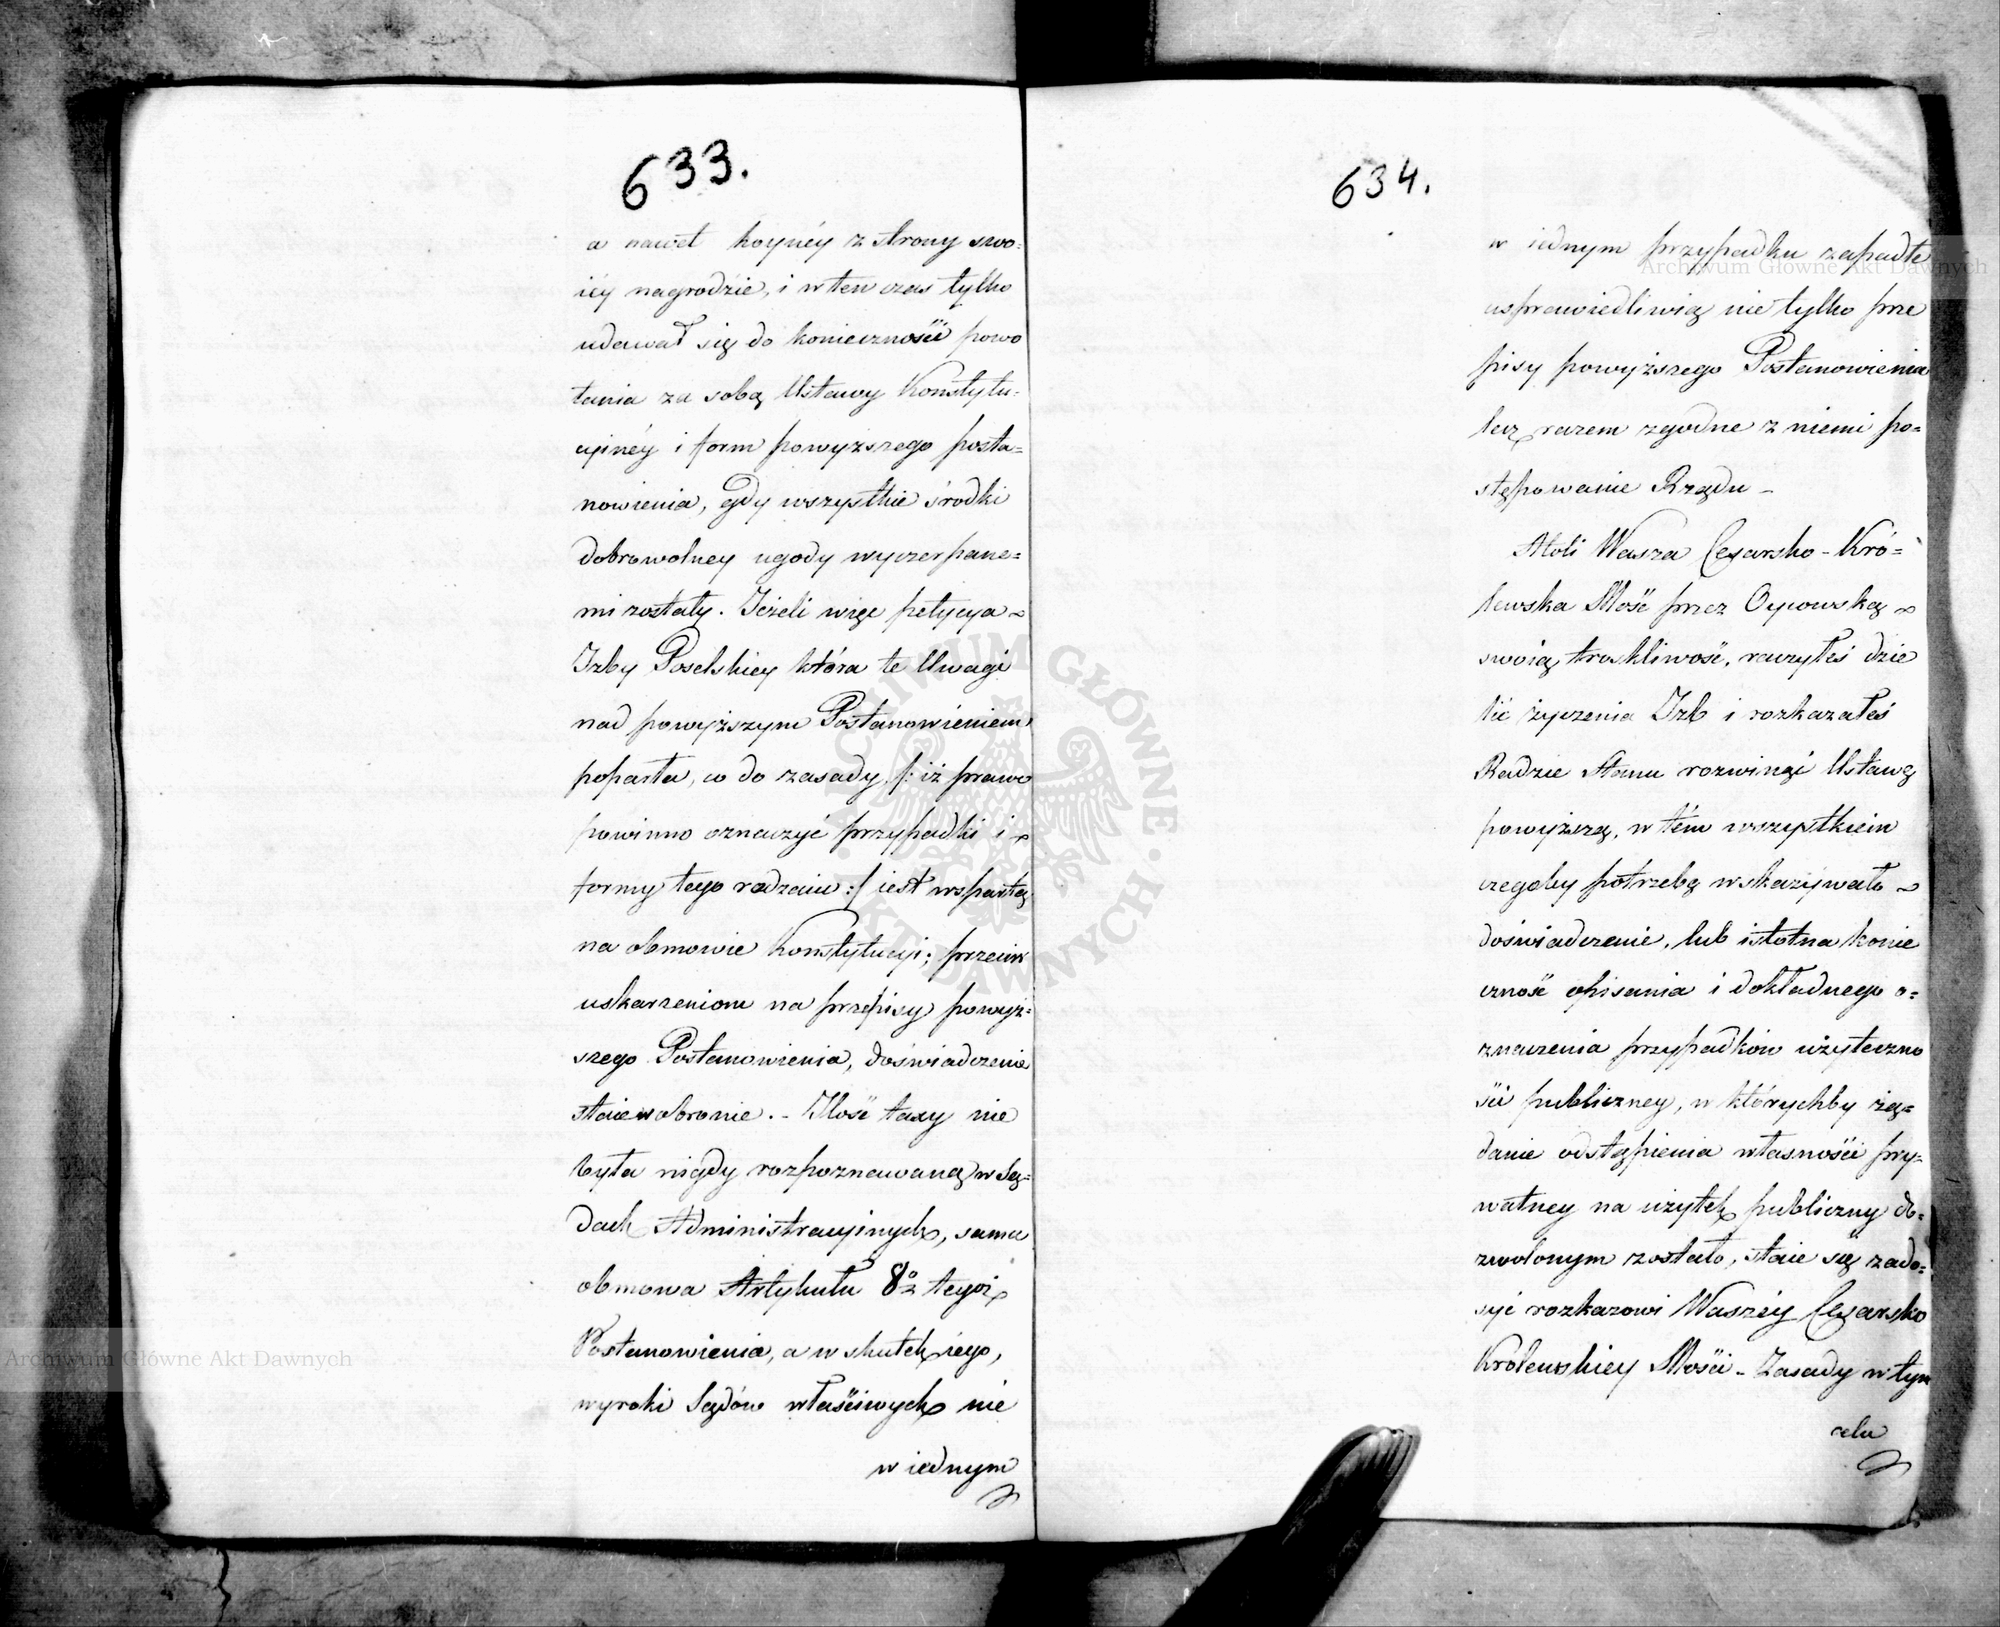 633.
a nawet hoynéy z strony swo=
iéy nagrodzie, i w ten czas tylko
udawał się do konieczności powo
łania za sobą Ustawy Konstytu=
cyinéy i form powyższego posta=
nowienia, gdy wszystkie środki
dobrowolney ugody wyczerpane=
mi zostały. Jeżeli więc petycya
Izby Poselskiey która te Uwagi
nad powyższym Postanowieniem,
poparła, co do zasady /: iż prawo
powinno oznaczyć przypadki i
formy tego rodzaiu :/ iest wspartą
na obmowie Konstytucyi; przeciw
uskarzeniom na przepisy powyż=
szego Postanowienia, doświadczenie
staie w obronie. - Ilość taxy nie
była nigdy rozpoznawaną w Są=
dach Administracyinych, sama
obmowa Artykułu 8o tegoż
Postanowienia, a w skutek iego,
wyroki Sądów właściwych nie
w iednym
634.
w iednym przypadku zapadłe
usprawiedliwią nie tylko prze
pisy powyższego Postanowienia
lecz razem zgodne z niemi po=
stępowanie Rządu -
Atoli Wasza Cesarsko-Kró=
lewska Mość przez Oycowską
swoią troskliwość, raczyłeś dzie
lić życzenia Izb i rozkazałeś
Radzie Stanu rozwinąć Ustawę
powyższą, w tém wszystkiem
czegoby potrzebę wskazywało
doświadczenie, lub istotna konie
czność opisania i dokładnego o=
znaczenia przypadków użyteczno
ści publiczney, w którychby żą=
danie odstąpienia własności pry=
watney na użytek publiczny do=
zwolonym zostało, staie się zado=
syć rozkazowi Waszéy Cesarsko
Królewskiey Mości - Zasady w tym
celu
Archiwum Główne Akt Dawnych
Archiwum Główne Akt Dawnych
ARCHIWUM GŁÓWNE · AKT DAWNYCH ·